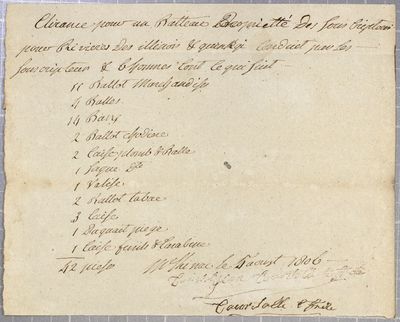 Clirance pour un Batteau Propriette Des Sous Cripteur
pour Rivieres Des illinois & quinkqui Conduit par les
Souscripteur & 6 homes Sont Ce qui Suit
11 Ballot Marchandises
4 Balles
14 Barij
2 Ballot chodiere
2 Caise plomb & Balle
1 Saque Do
1 Valise
2 Ballot tabac
3 Caise
1 paquait piege
1 Caise fusils & Carabine
42 pieses
Mk kinac le 4 aoust 1806
Coursolle & frere